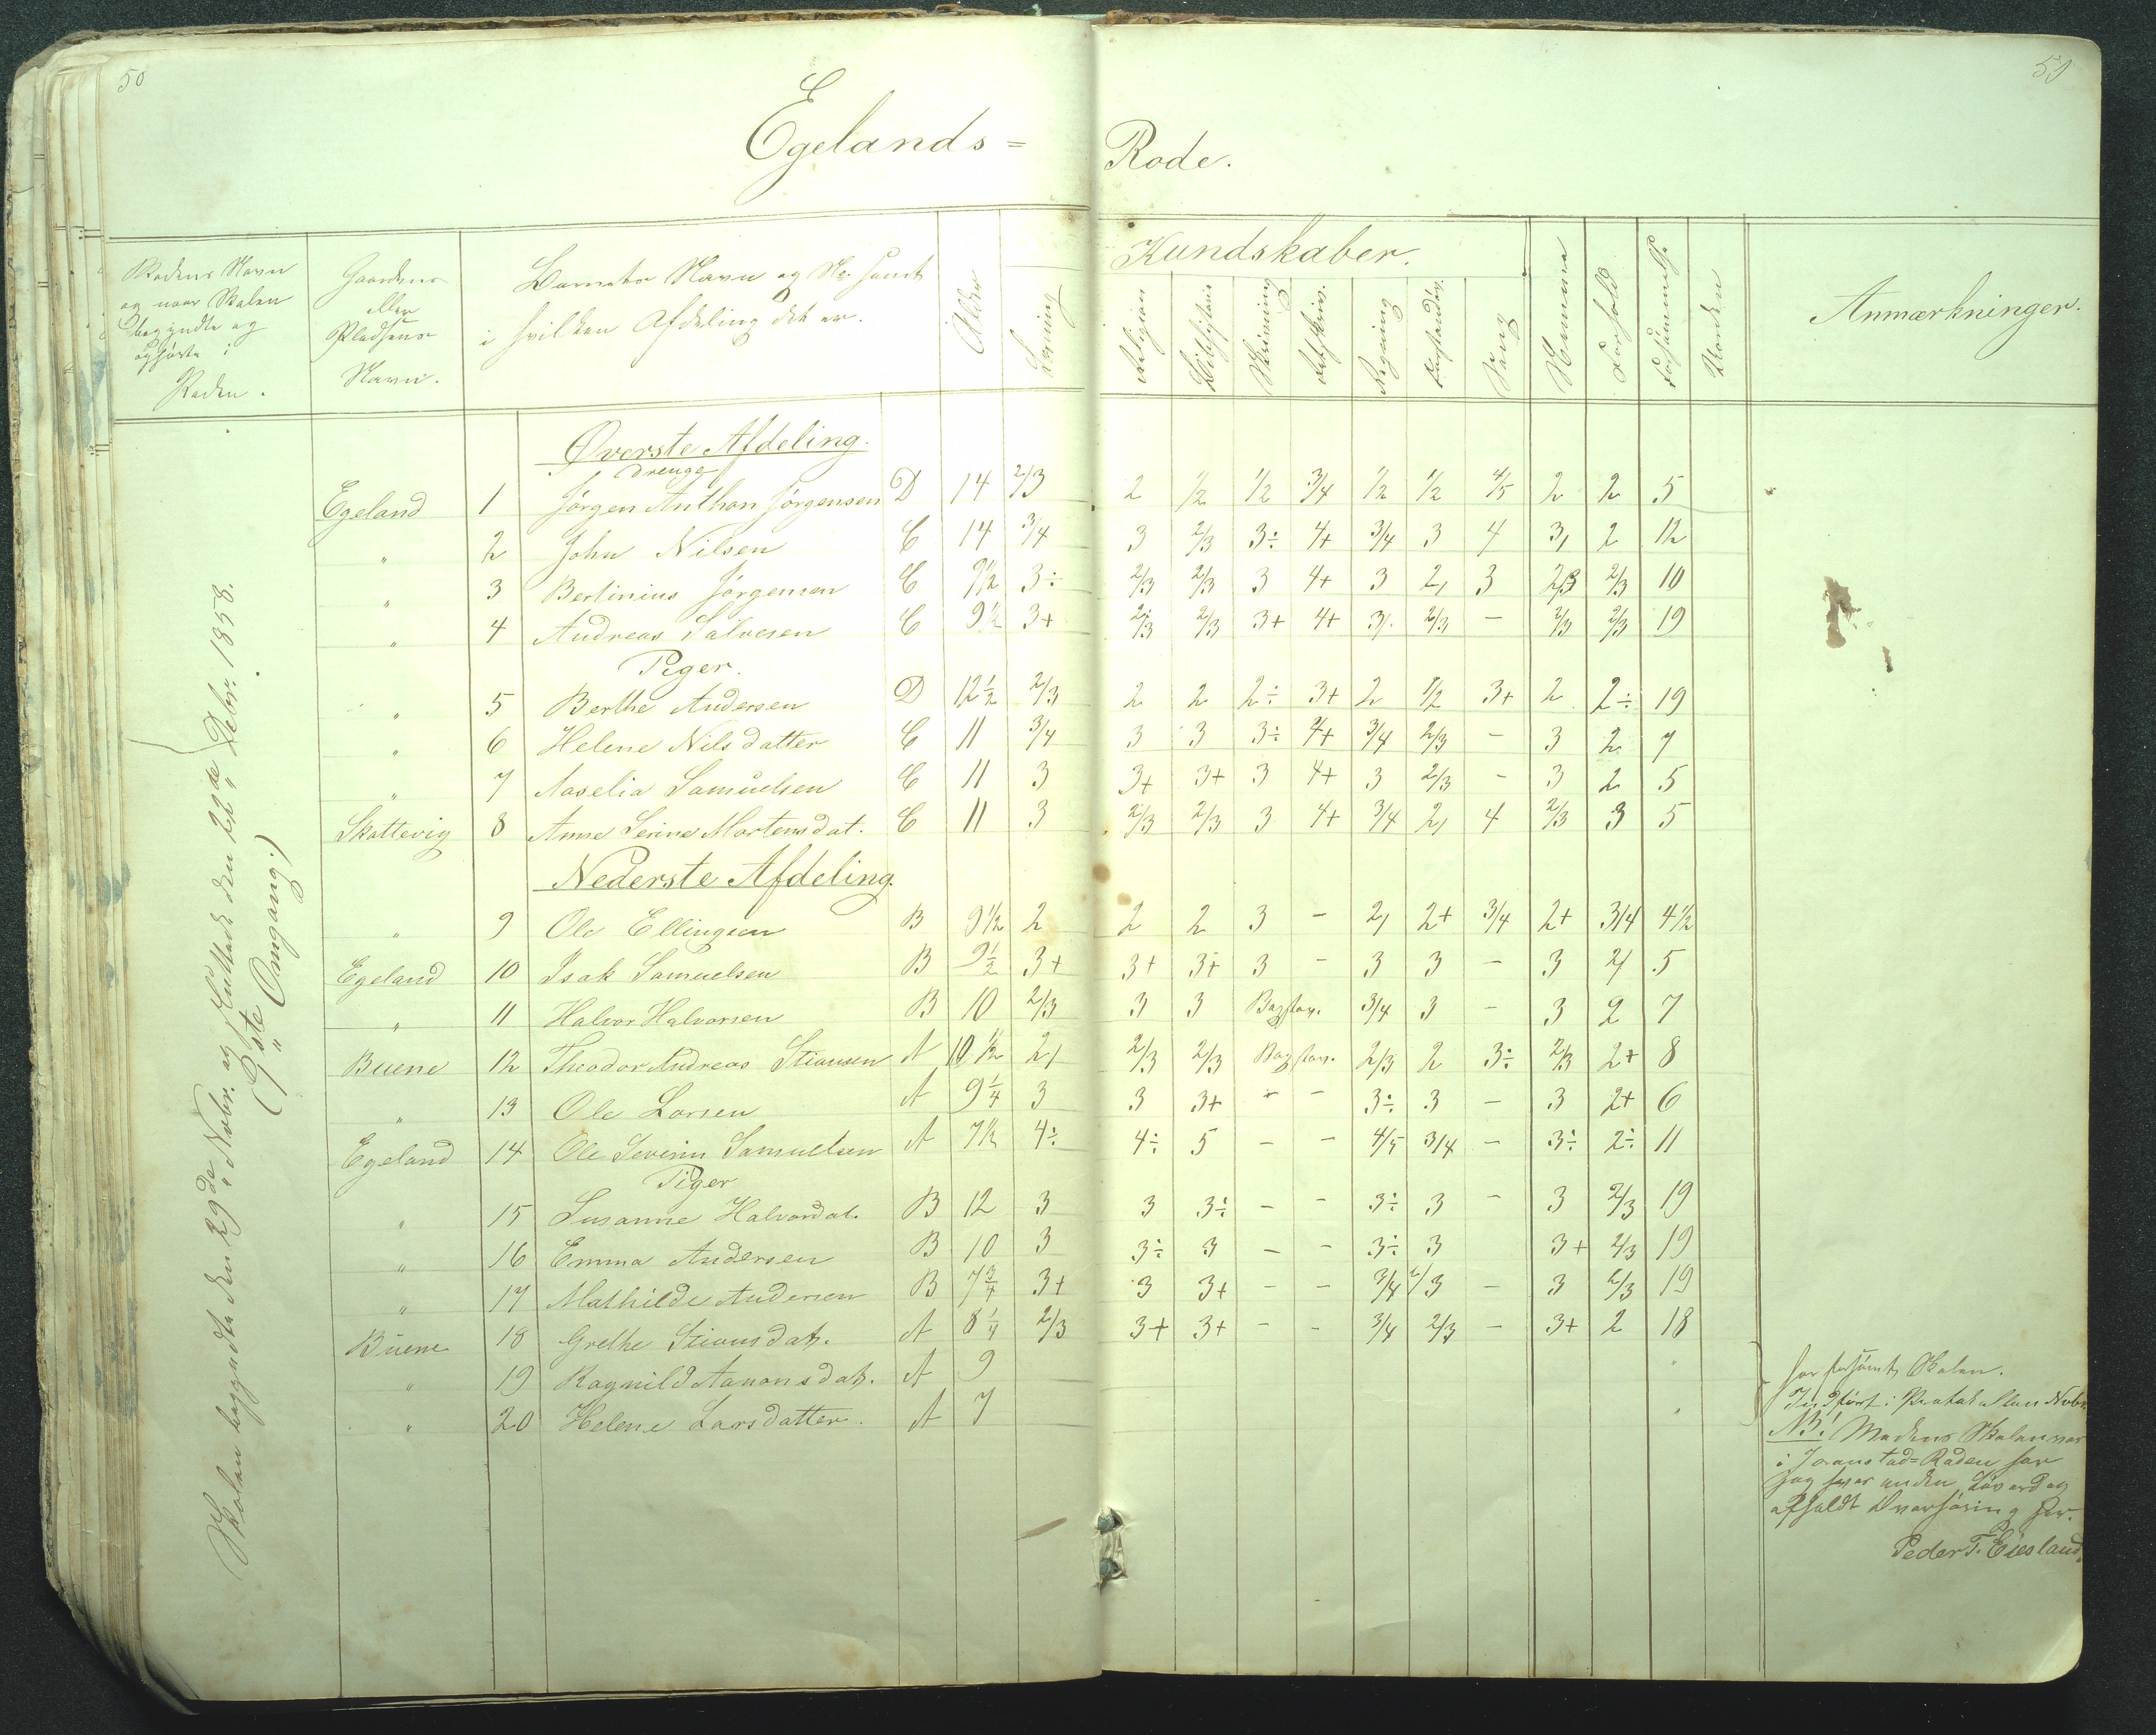 50
50
Egelands=
Rode.
Rodens Navn
og naar Skolen
begyndte og
ophørte i
Roden.
Gaardens
eller
Pladsens
Navn.
Barnets Navn og No samt
i hvilken Afdeling det er.
Alder
Læsning
Kundskaber.
Religion
Bibelhistorie
Skrivning
Retskriv.
Regning
Forstandöv.
Sang
Nemme
Forhold
Forsømmelse
Anmærkninger.
Skolen begyndte den 29de Nobr. og sluttede den 22de Debr. 1858.
(9ste Omgang.)
Øverste Afdeling.
Drenge
Egeland 1 Jørgen Anthon Jørgensen D 14 2/3 2 1/2 1/2 3/4 1/2 1/2 4/5 2 2 5
" 2 John Nilsen C 14 3/4 3 2/3 3÷ 4+ 3/4 3 4 3, 2 12
" 3 Bertinius Jørgensen C 9 1/2 3÷ 2/3 2/3 3 4+ 3 2, 3 2/3 2/3 10
" 4 Andreas Salvesen C 9 1/2 3+ 2/3 2/3 3+ 4+ 3/. 2/3 - 2/3 2/3 19
Piger.
" 5 Berthe Andersen D 12 1/2 2/3 2 2 2÷ 3+ 2 1/2 3+ 2 2÷ 19
" 6 Helene Nilsdatter C 11 3/4 3 3 3÷ 4+ 3/4 2/3 - 3 2 7
" 7 Aaselia Samuelsen C 11 3 3+ 3+ 3 4+ 3 2/3 - 3 2 5
Skottevig 8 Anne Serine Mortensdat. C 11 3 2/3 2/3 3 4+ 3/4 2, 4 2/3 3 5
Nederste Afdeling.
" 9 Ole Ellingsen B 9 1/2 2 2 2 3 - 2, 2+ 3/4 2+ 3/4 4 1/2
Egeland 10 Isak Samuelsen B 9 1/2 3+ 3+ 3+ 3 - 3 3 - 3 2/ 5
" 11 Halvor Halvorsen B 10 2/3 3 3 Bogstav. 3/4 3 - 3 2 7
Buene 12 Theodor Andreas Stiansen A 10 1/2 2, 2/3 2/3 Bogstav. 2/3 2 3÷ 2/3 2+ 8
" 13 Ole Larsen A 9 1/4 3 3 3+ - - 3÷ 3 - 3 2+ 6
Egeland 14 Ole Severin Samuelsen A 7 1/2 4÷ 4÷ 5 - - 4/5 3/4 - 3÷ 2÷ 11
Piger
" 15 Susanne Halvordat. B 12 3 3 3÷ - - 3÷ 3 - 3 2/3 19
" 16 Emma Andersen B 10 3 3÷ 3 - - 3÷ 3 3+ 2/3 19
" 17 Mathilde Andersen B 7 3/4 3+ 3 3+ - - 3/4 2/3 - 3 2/3 19
Buene 18 Grethe Stiansdat. A 8 1/4 2/3 3+ 3+ - - 3/4 2/3 - 3+ 2 18
" 19 Ragnild Aanonsdat. A 9 "
" 20 Helene Larsdatter. A 7 "
har forsømt Skolen.
Indført i Protokollen Nobr.
NB! Medens Skolen var
i Roden har
jeg hver anden Løverdag
afholdt Overhøring her.
Peder T. Eiesland.